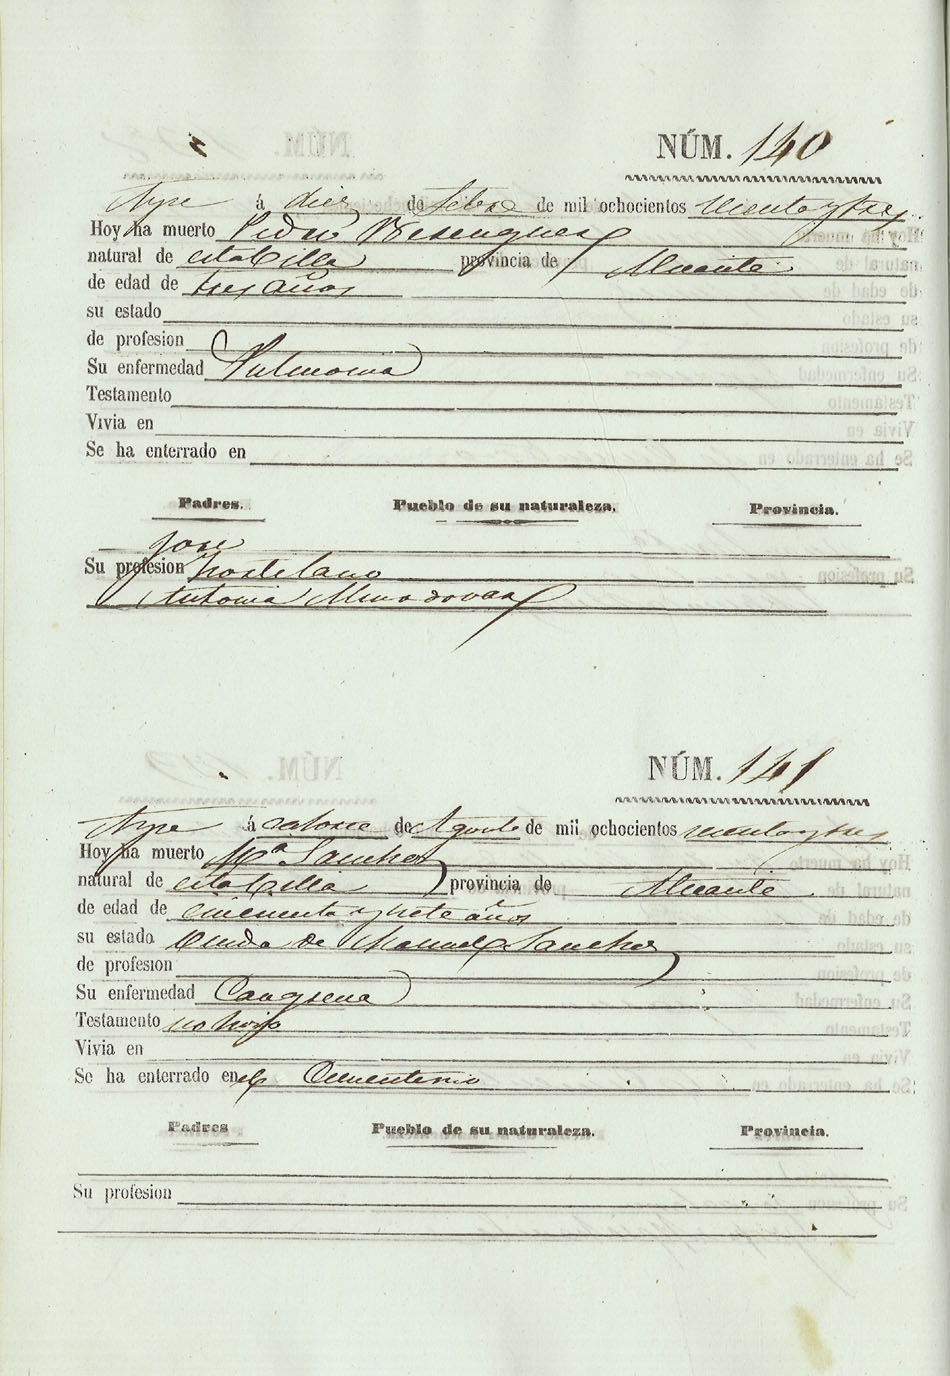 NÚM. 140
Aspe á diez de de mil ochocientos
Hoy ha muerto Pedro Berenguer
natural de esta Villa provincia de Alicante
de edad de tres años
su estado
de profesion
Su enfermedad Pulmonia
Testamento
Vivia en
Se ha enterrado en
Padres. Pueblo de su naturaleza. Provincia.
Jose
Su profesion Hortelano
Antonia
NÚM. 141
Aspe á catorce de Agosto de mil ochocientos
Hoy ha muerto Mª Sanchez
natural de esta Villa provincia de Alicante
de edad de cincuenta y siete años
su estado Viuda de Manuel Sanchez
de profesion
Su enfermedad Cangrena
Testamento no hizo
Vivia en
Se ha enterrado en el Cementerio
Padres Pueblo de su naturaleza. Provincia.
Su profesion